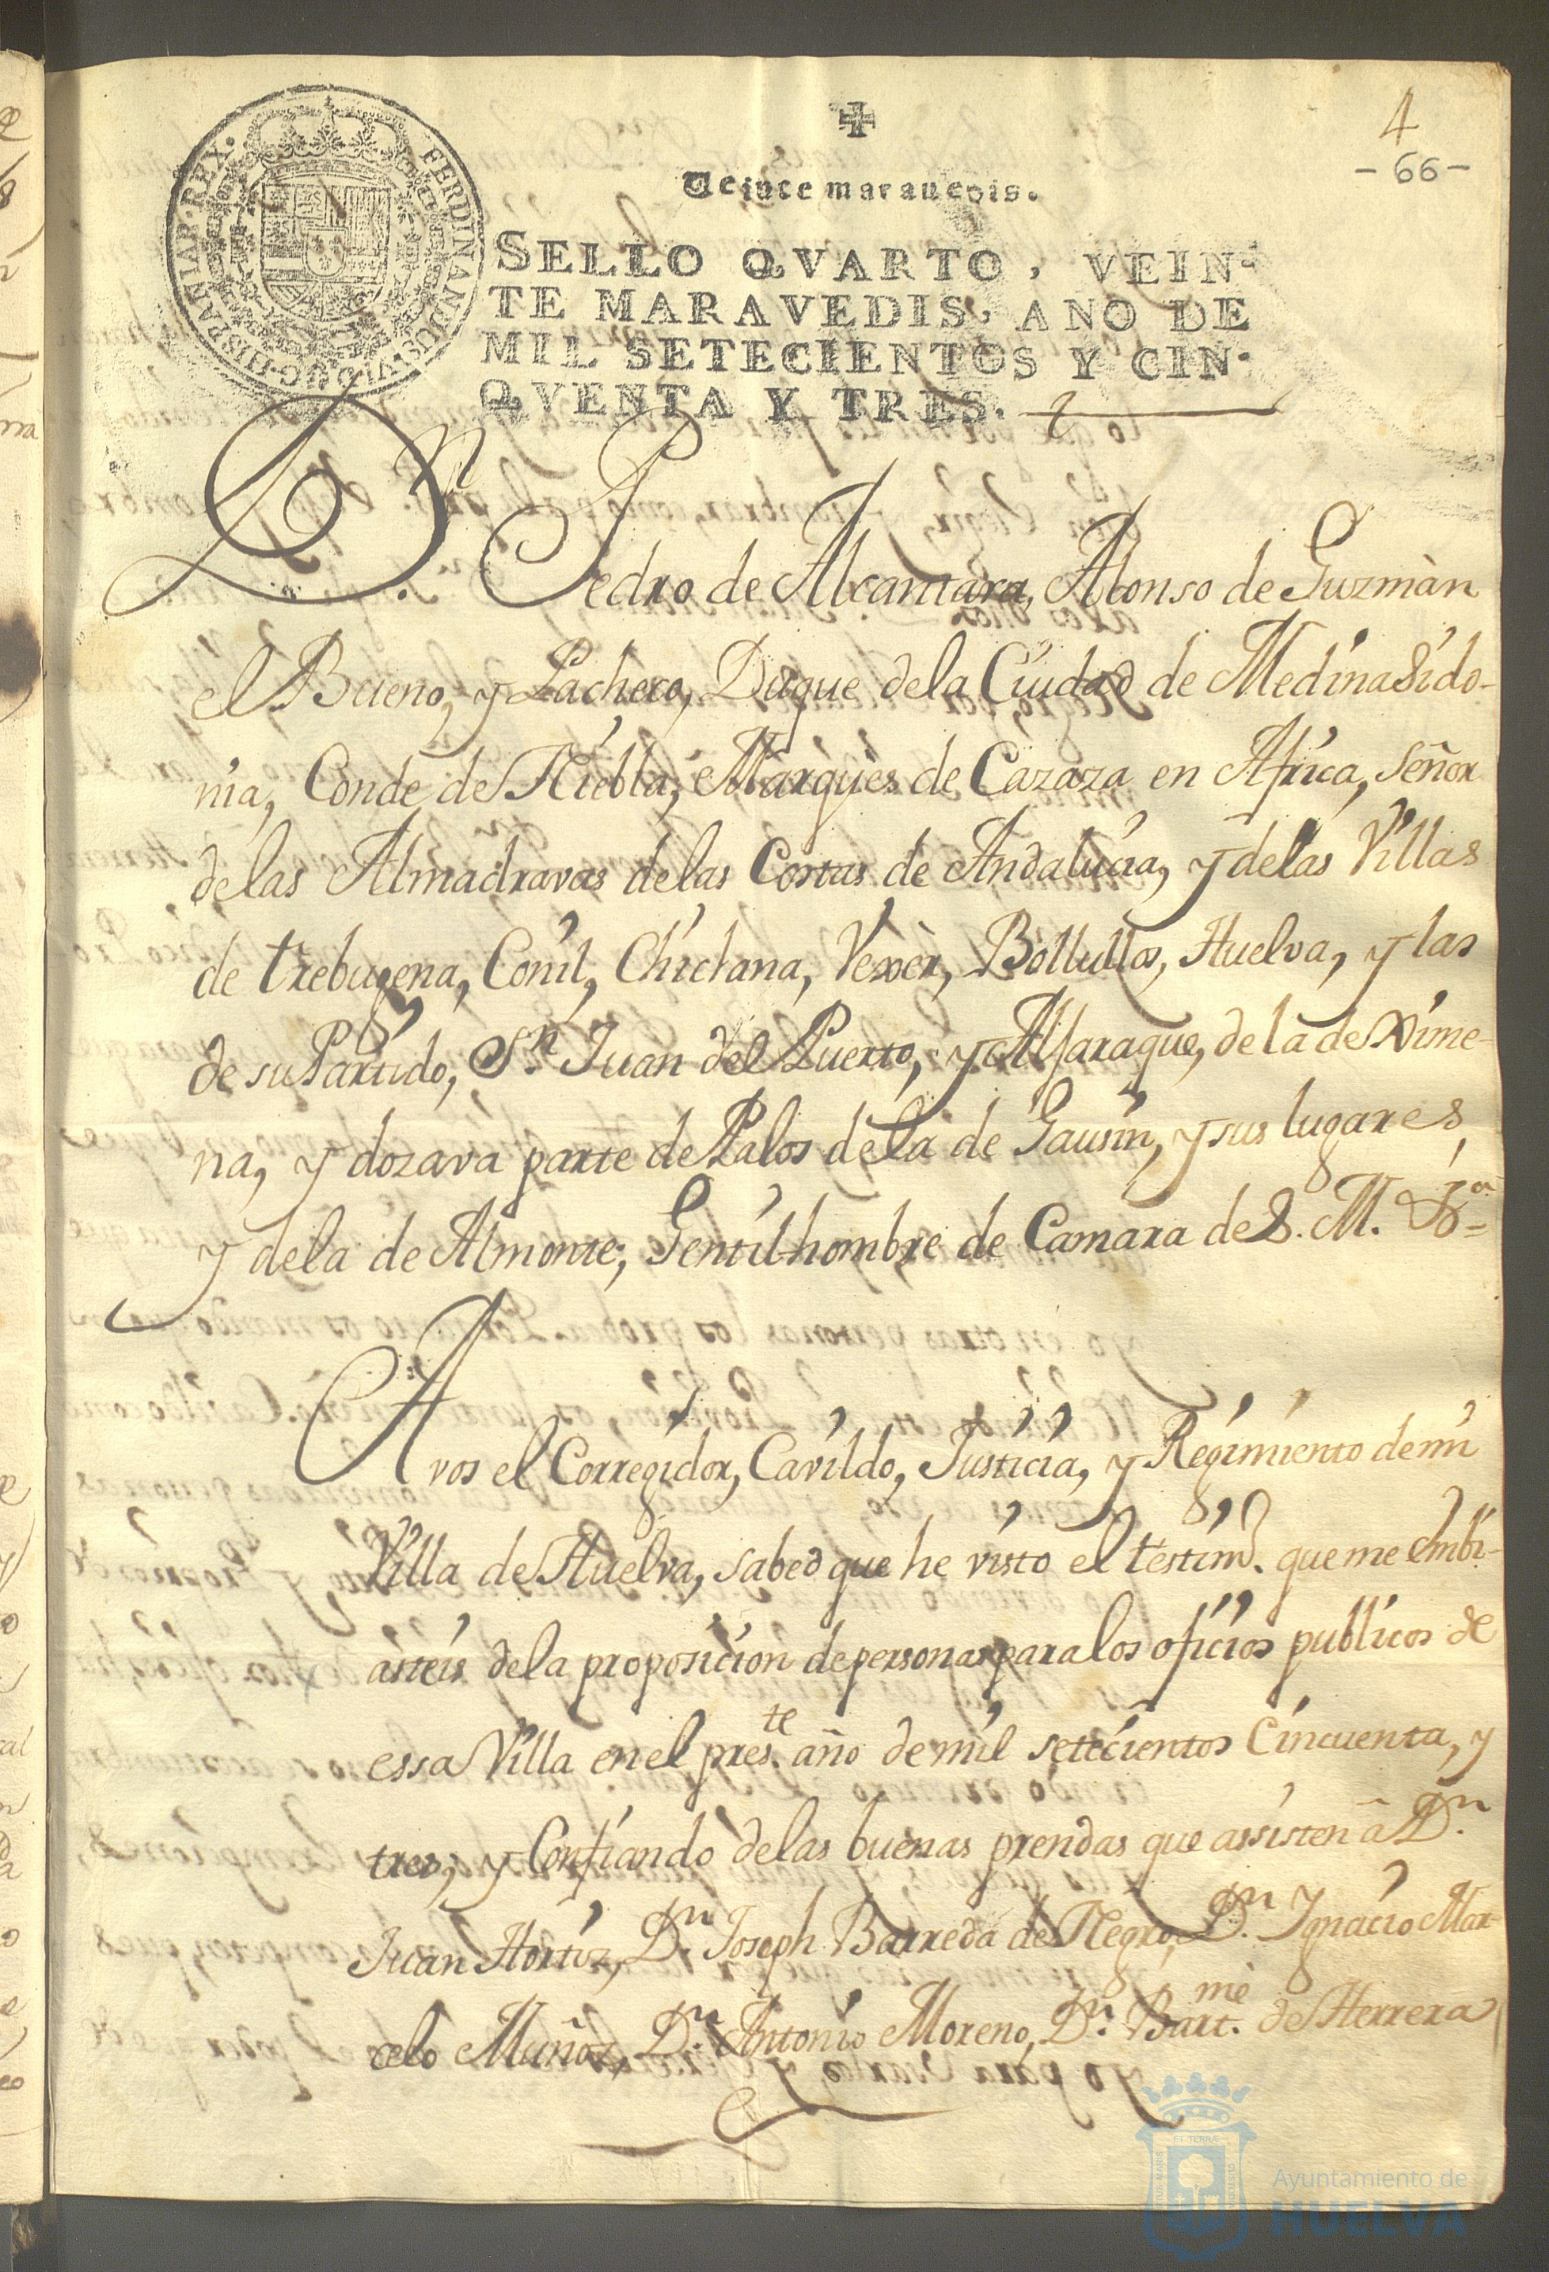 4
- 66 -
Veinte maravedis.
SELLO QVARTO, VEIN-
TE MARAVEDIS, AÑO DE
MIL SETECIENTOS Y CIN-
QVENTA Y TRES.
FERDINANDUS·VI·D·G·HISPANIAR·REX·
Dn. Pedro de Alcantara, Alonso de Guzmàn
el Bueno, y Pacheco, Duque dela Ciudad de Medina Sido-
nia, Conde de Niebla, Marques de Cazaza en Africa, Señor
delas Almadravas delas Costas de Andalucia, y delas Villas
de trebugena, Conil, Chiclana, Vexèr, Bollullos, Huelva, y las
de su Partido, Sn. Juan del Puerto, y Alfaraque, de la de Xime-
na, y dozava parte de Palos dela de Gausin, y sus lugares,
y dela de Almonte, Gentil-hombre de Camara de S. M. &a=
A vos el Corregidor, Cavildo, Justicia, y Regimiento de mi
Villa de Huelva, sabed que he visto el testimo. que me embi-
asteis dela proposicion de personas para los oficios publicos de
essa Villa en el preste. año de mil setecientos Cincuenta, y
tres, y Confiando delas buenas prendas que assisten â Dn.
Juan Hortiz, Dn. Joseph Barreda de Negro, Dn. Ignacio Mar-
celo Muñoz, Dn. Antonio Moreno, Dn. Bartme. de Herrera
Ayuntamiento de
HUELVA